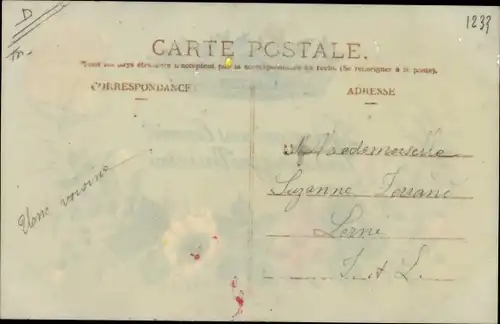 D
1237
CARTE POSTALE.
Tous les pays étrangers n'acceptent pas la correspondance au recto. (Se renseigner à la poste).
CORRESPONDANCE
ADRESSE
Mademoiselle
Suzanne
Une voisine